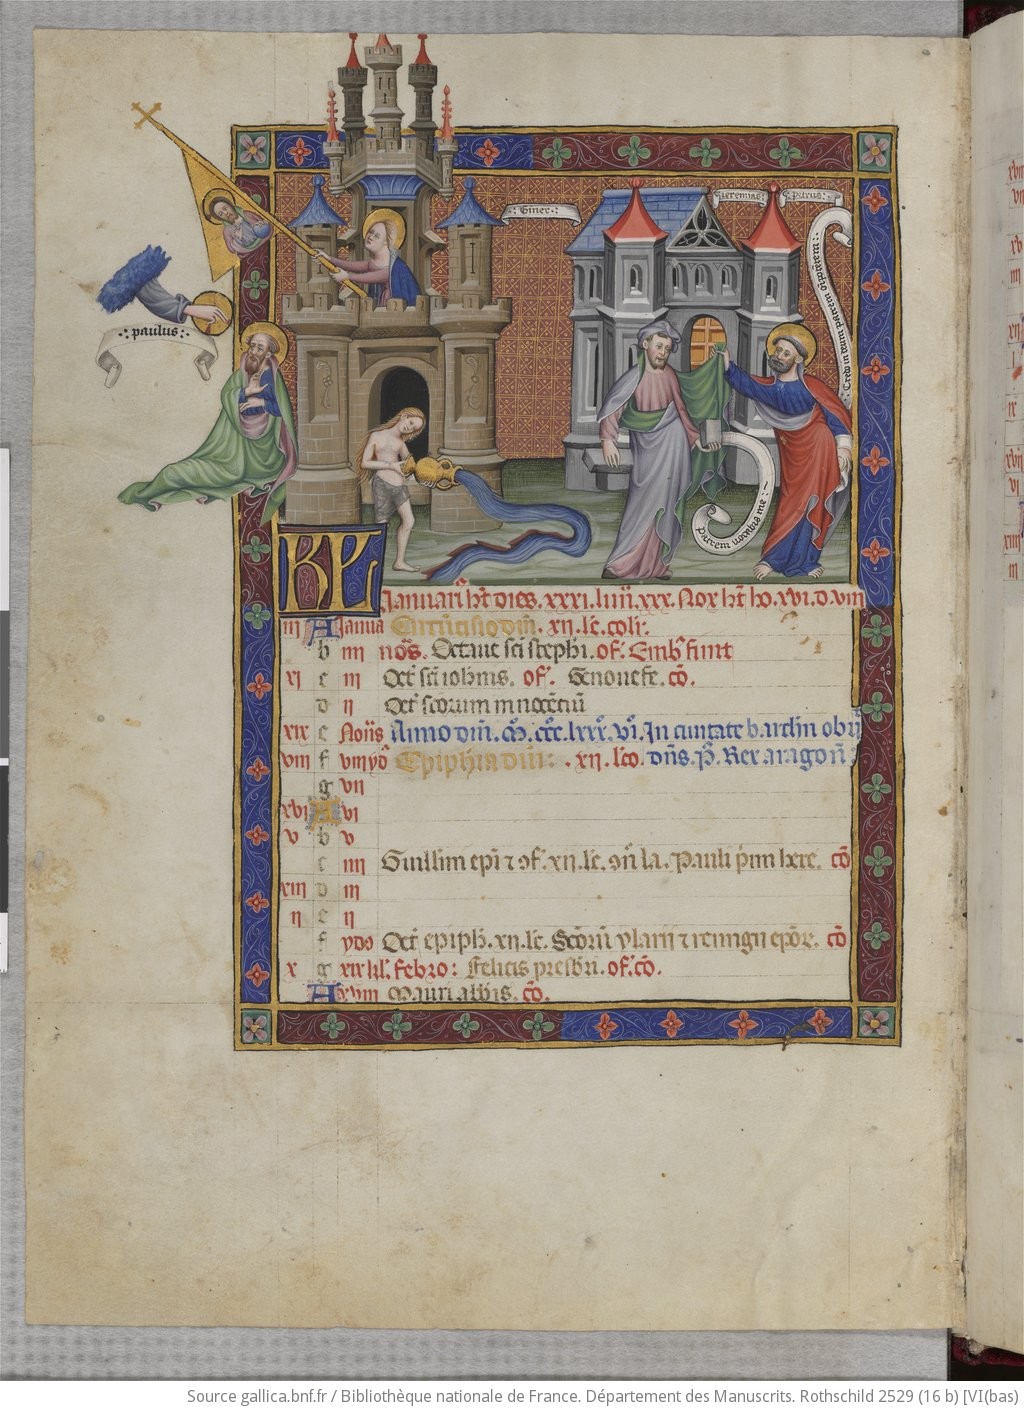 ·:paulus:·
:Giner:
:Ieremias:
:Petrus:
Credo in deum patrem oīpotētem
patrem uocabis me:
KL
Januari⁹ h̄t dies .xxxi. lūn̄ .xxx. Nox h̄t ho. xvi. d. viii
iii A Janua Circūcisio dn̄i. xii. lc̄. coli:
b iiii no͞s. Octaue sc̄i stephī. of. Emb̓ fiunt
xi c iii Oct̄ sc̄i iohnis. of. Genouefe. cō.
d ii Oct̄ sc̄orum innocētiū
xix e Noīis Anno dn̄i. M. ccc. lxxx. vi. In ciuitate barchn̄ obiit
viii f viii ydꝰ Epiphīa dn̄i: . xii. lc̄o. dn̄s. P. Rex aragon̄
g vii
xvi A vi
v b v
c iiii Guill̄mi ep̄i ⁊ ɔf. xii. lc̄. Pauli p̄mi here. cō
xiii d iii
ii e ii
f ydꝰ Oct̄ epiph̄. xii. lc̄. Sc̄orū ylarii ⁊ remigii ep̄or̄. cō
x g xix kl̄. febro: Felicis presbr̄i. of. cō.
A xviii Mauri abb̄is. cō.
Source gallica.bnf.fr / Bibliothèque nationale de France. Département des Manuscrits. Rothschild 2529 (16 b) [VI(bas)